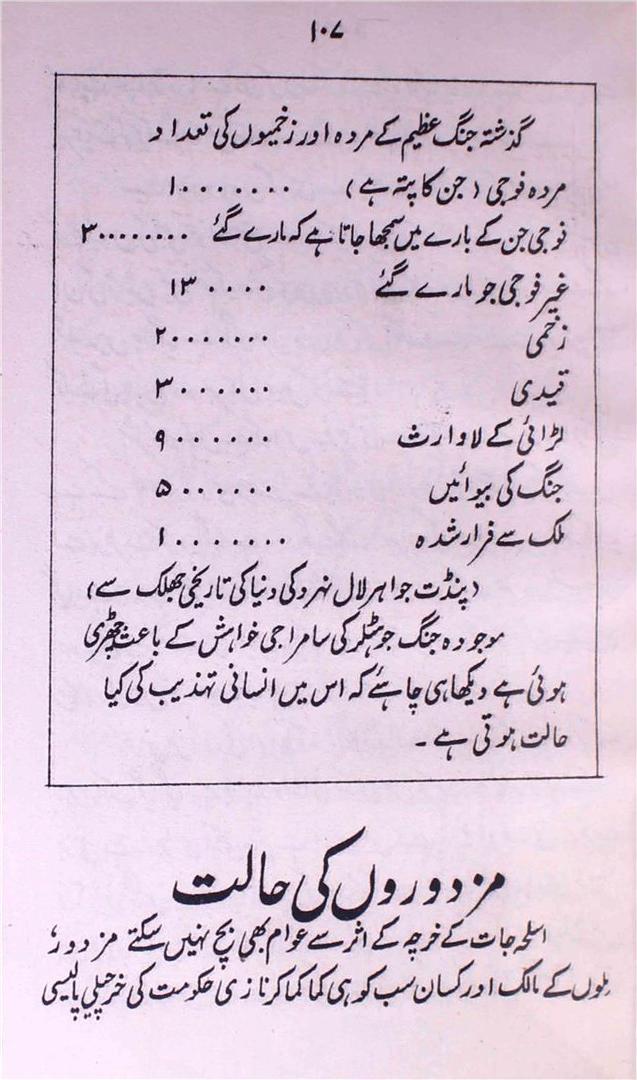 ۱۰۷
گذشتہ جنگ عظیم کے مردہ اور زخمیوں کی تعداد
مردہ فوجی (جن کا پتہ ہے) ۱۰۰۰۰۰۰۰
فوجی جن کے بارے میں سمجھا جاتا ہے کہ مارے گئے ۳۰۰۰۰۰۰۰
غیر فوجی جو مارے گئے ۱۳۰۰۰۰
زخمی ۲۰۰۰۰۰۰۰
قیدی ۳۰۰۰۰۰۰
لڑائی کے لاوارث ۹۰۰۰۰۰۰
جنگ کی بیوائیں ۵۰۰۰۰۰۰
ملک سے فرار شدہ ۱۰۰۰۰۰۰۰
(پنڈت جواہر لال نہرو کی دنیا کی تاریخی جھلک سے)
موجودہ جنگ جو ہٹلر کی سامراجی خواہش کے باعث چھڑی
ہوئی ہے دیکھا ہی چاہئے کہ اس میں انسانی تہذیب کی کیا
حالت ہوتی ہے ۔
مزدوروں کی حالت
اسلحہ جات کے خرچہ کے اثر سے عوام بھی بچ نہیں سکتے مزدور،
ملوں کے مالک اور کسان سب کو ہی کما کما کر نازی حکومت کی خرچیلی پالیسی